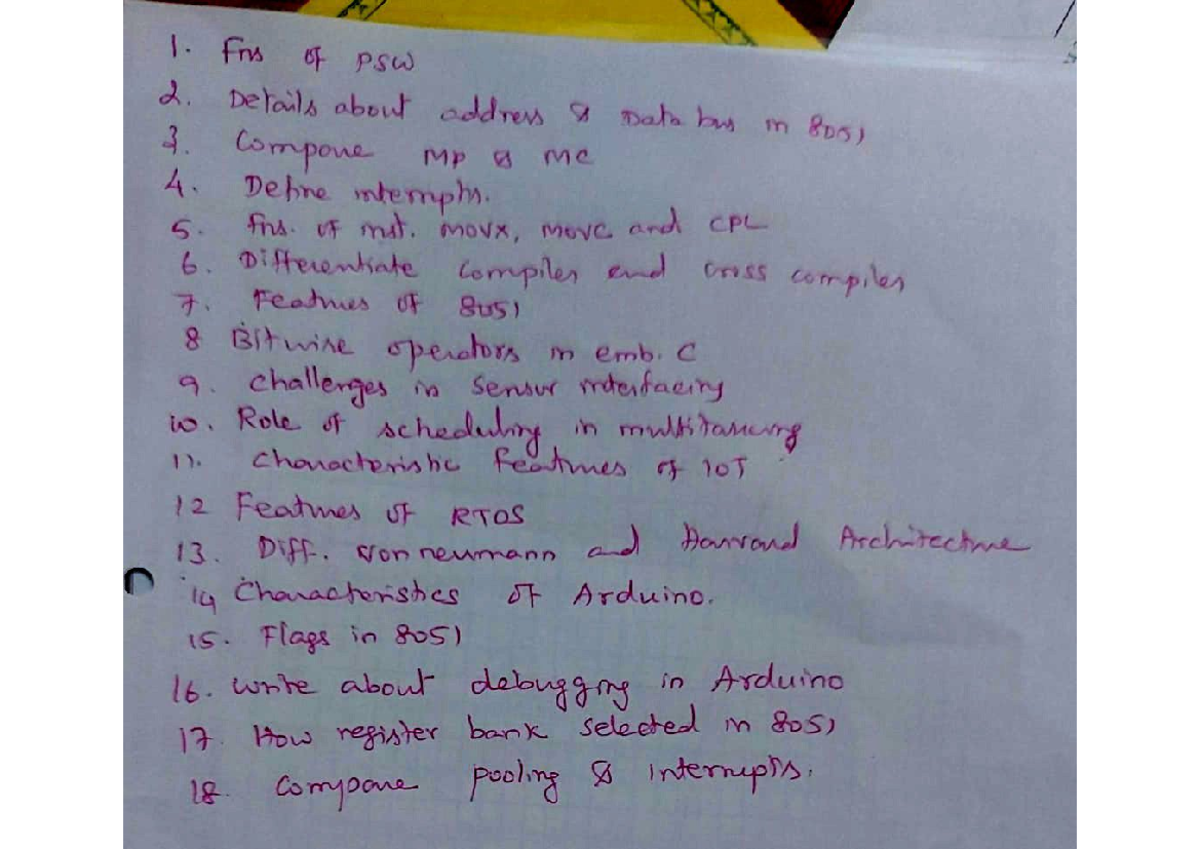 1. Fns of PSW
2. Details about address & Data bus in 8051
3. Compare MP & MC
4. Define interrupts.
5. fns. of inst. MOVX, MOVC and CPL
6. Differentiate compiler and cross compiler
7. Features of 8051
8 Bitwise operators in emb. C
9. Challenges in Sensor interfacing
10. Role of scheduling in multitasking
11. Characteristic features of IOT
12 Features of RTOS
13. Diff. von neumann and Harvard Architecture
14 Characteristics of Arduino.
15. Flags in 8051
16. Write about debugging in Arduino
17. How register bank selected in 8051
18. Compare pooling & interrupts.